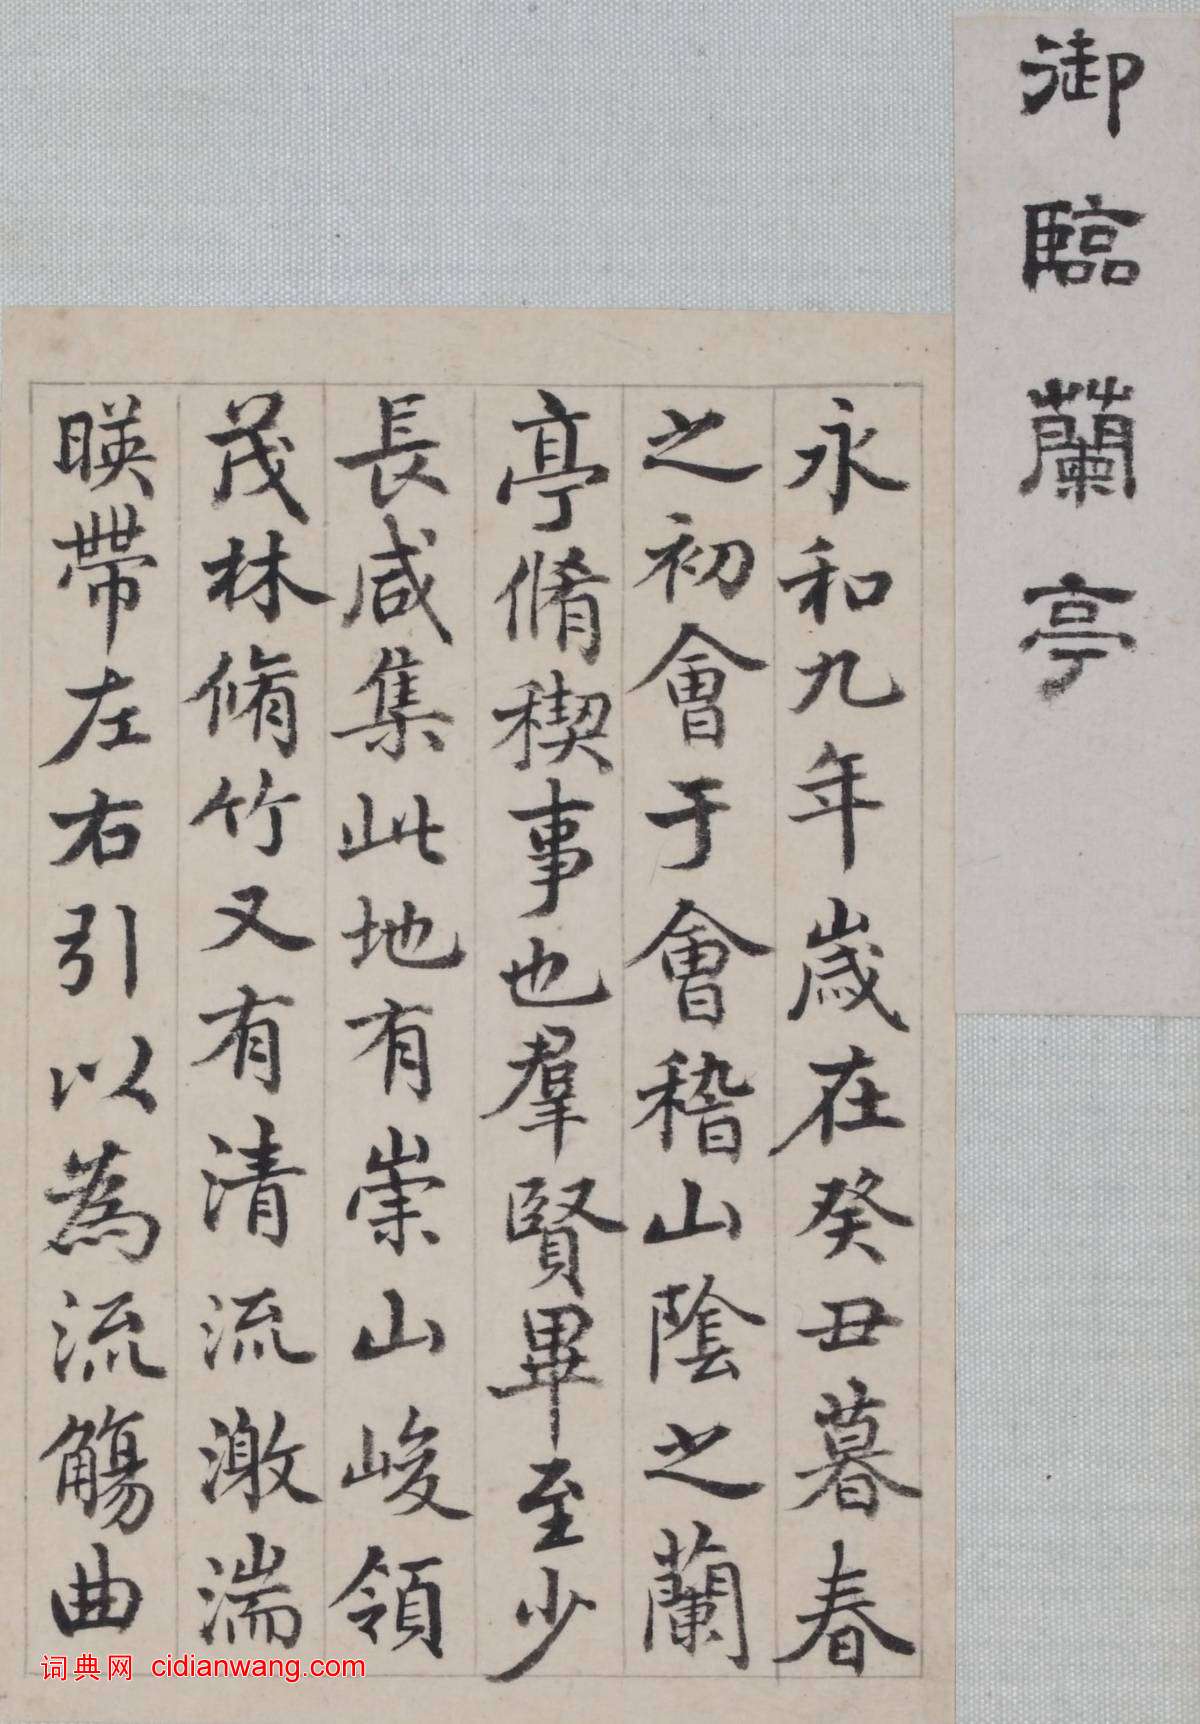 御臨蘭亭
永和九年歲在癸丑暮春
之初會于會稽山陰之蘭
亭脩稧事也羣賢畢至少
長咸集此地有崇山峻領
茂林脩竹又有清流激湍
暎帶左右引以為流觴曲
词典网 cidianwang.com